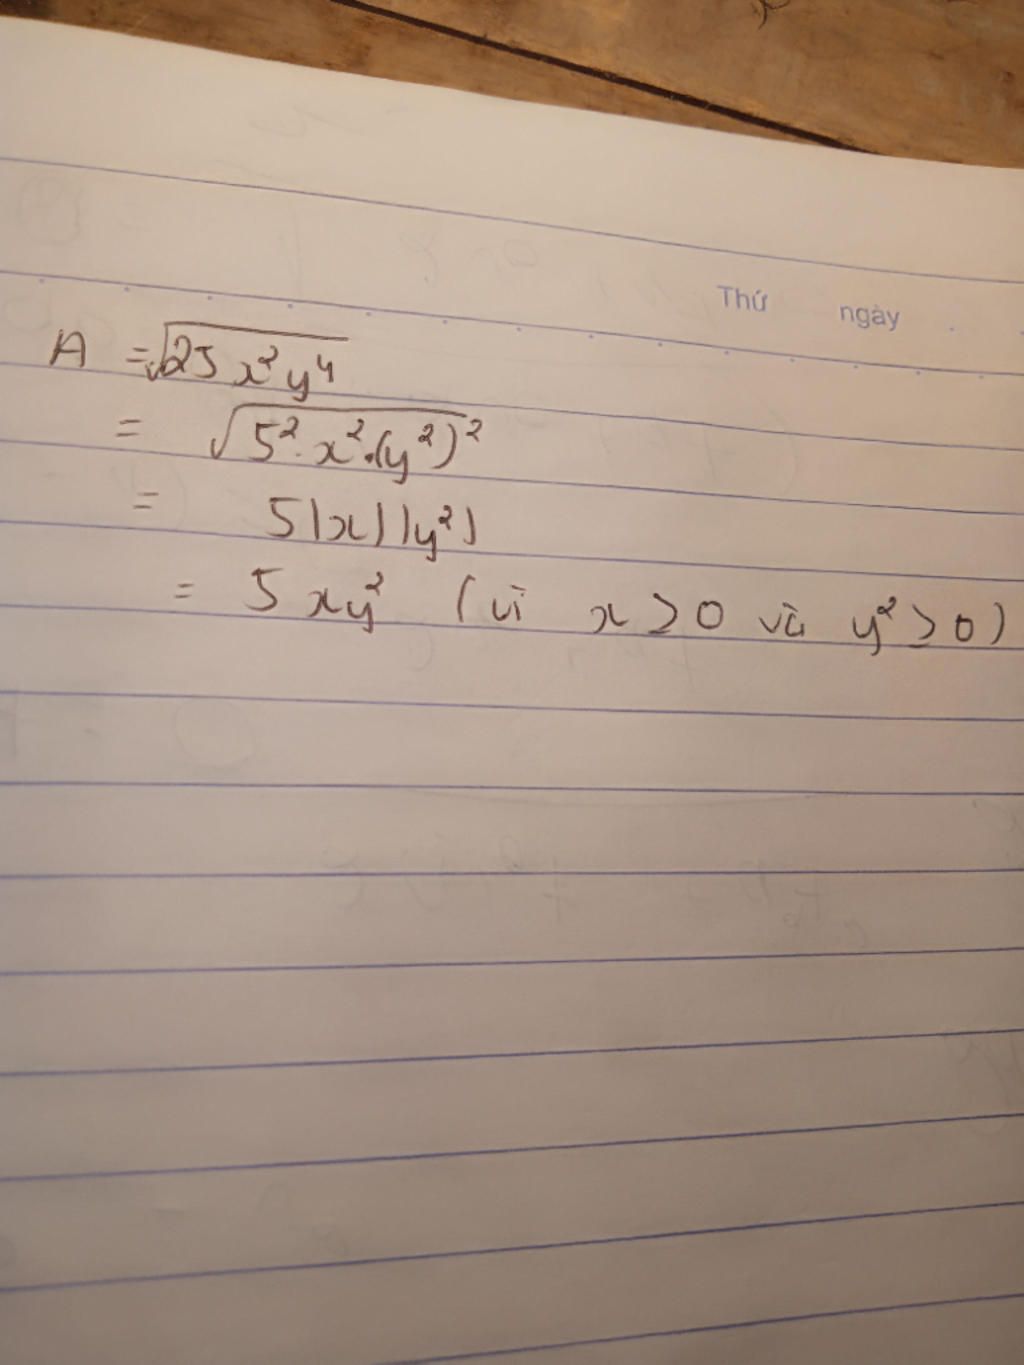 Thứ ngày
A = √25x²y⁴
= √5².x².(y²)²
= 5|x||y²|
= 5xy² (vì x ≥ 0 và y² ≥ 0)